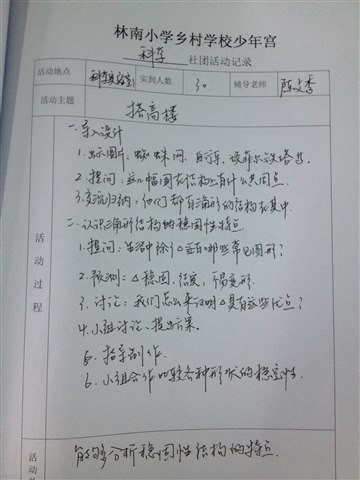 林南小学乡村学校少年宫
科学 社团活动记录
活动地点 科学实验室 实到人数 30 辅导老师 陈文秀
活动主题 搭高楼
活动过程
一.导入设计
1.出示图片:蜘蛛网、自行车、埃菲尔铁塔等.
2.提问:这几幅图在结构上有什么共同点.
3.交流归纳:他们都有三角形的结构在其中.
二.认识三角形结构的稳固性特点
1.提问:生活中除了△还有哪些常见图形?
2.预测:△稳固,结实,不易变形.
3.讨论:我们怎么来证明△具有这些优点?
4.小组讨论、提出方案.
5.指导制作.
6.小组合作比较各种形状的稳定性.
活动
能够分析稳固性结构的特点.